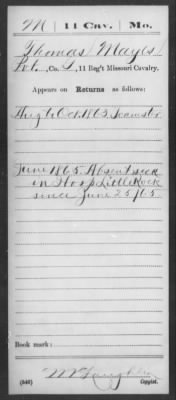 M | 11 Cav. | Mo.
Thomas Mayes
Pvt., Co. L, 11 Reg't Missouri Cavalry.
Appears on Returns as follows:
Aug to Oct. 1863. Teamster
June 1865. Absent sick
in Hosp Little Rock
since June 25/65.
Book mark:
McLaughlin
(546) Copyist.